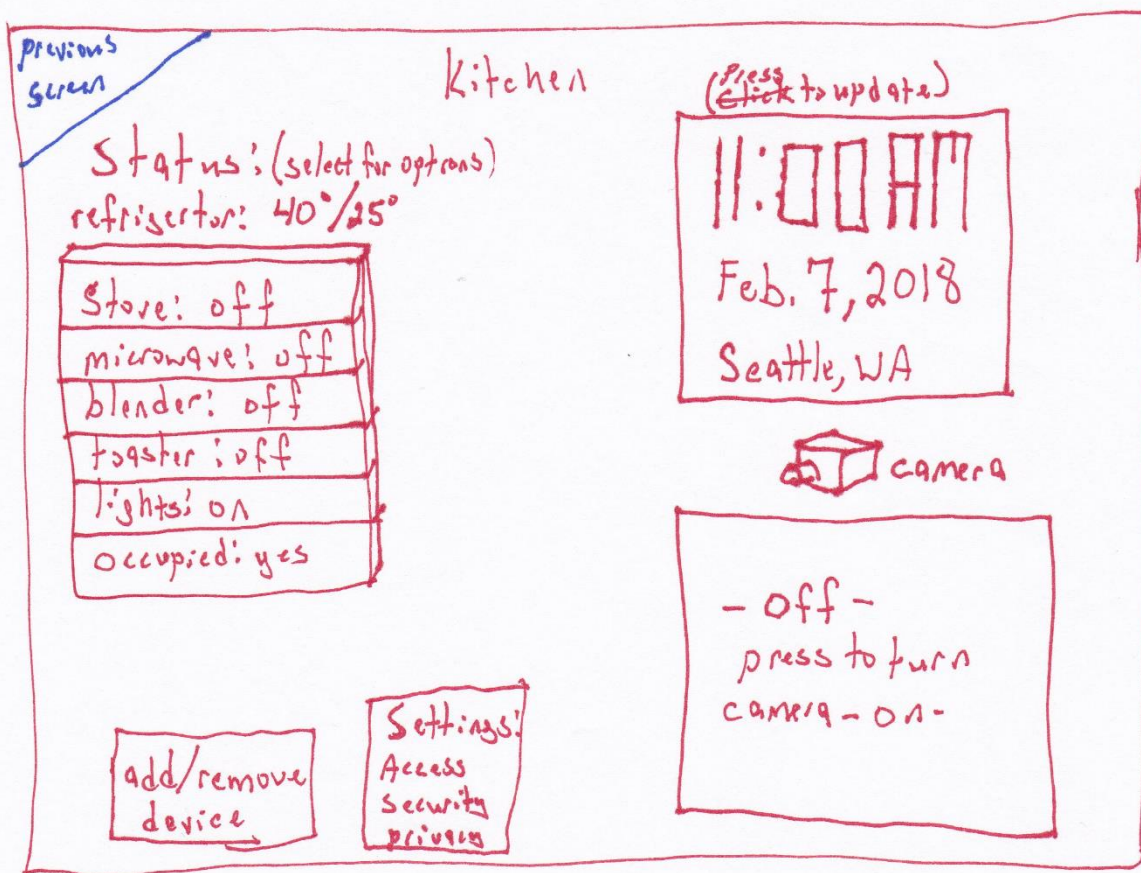 previous
screen
Kitchen
Status: (select for options)
refrigertor: 40°/25°
Stove: off
microwave: off
blender: off
toaster: off
lights: on
occupied: yes
add/remove
device
Settings:
Access
Security
privacy
Press
(Click to update)
11:00 AM
Feb. 7, 2018
Seattle, WA
camera
- Off -
press to turn
camera - on -